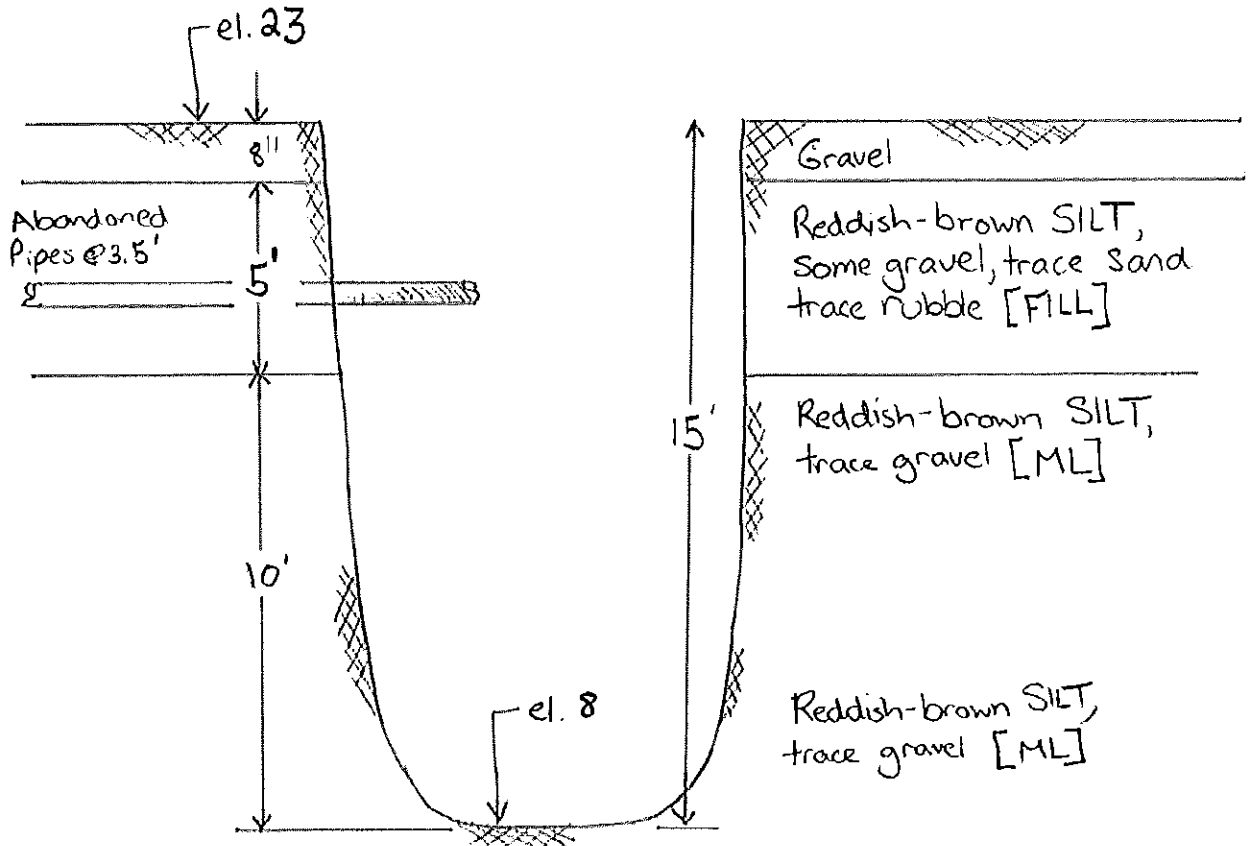 el. 23
8"
Gravel
Abandoned
Pipes @3.5'
5'
Reddish-brown SILT,
some gravel, trace sand
trace rubble [FILL]
15'
Reddish-brown SILT,
trace gravel [ML]
10'
el. 8
Reddish-brown SILT,
trace gravel [ML]